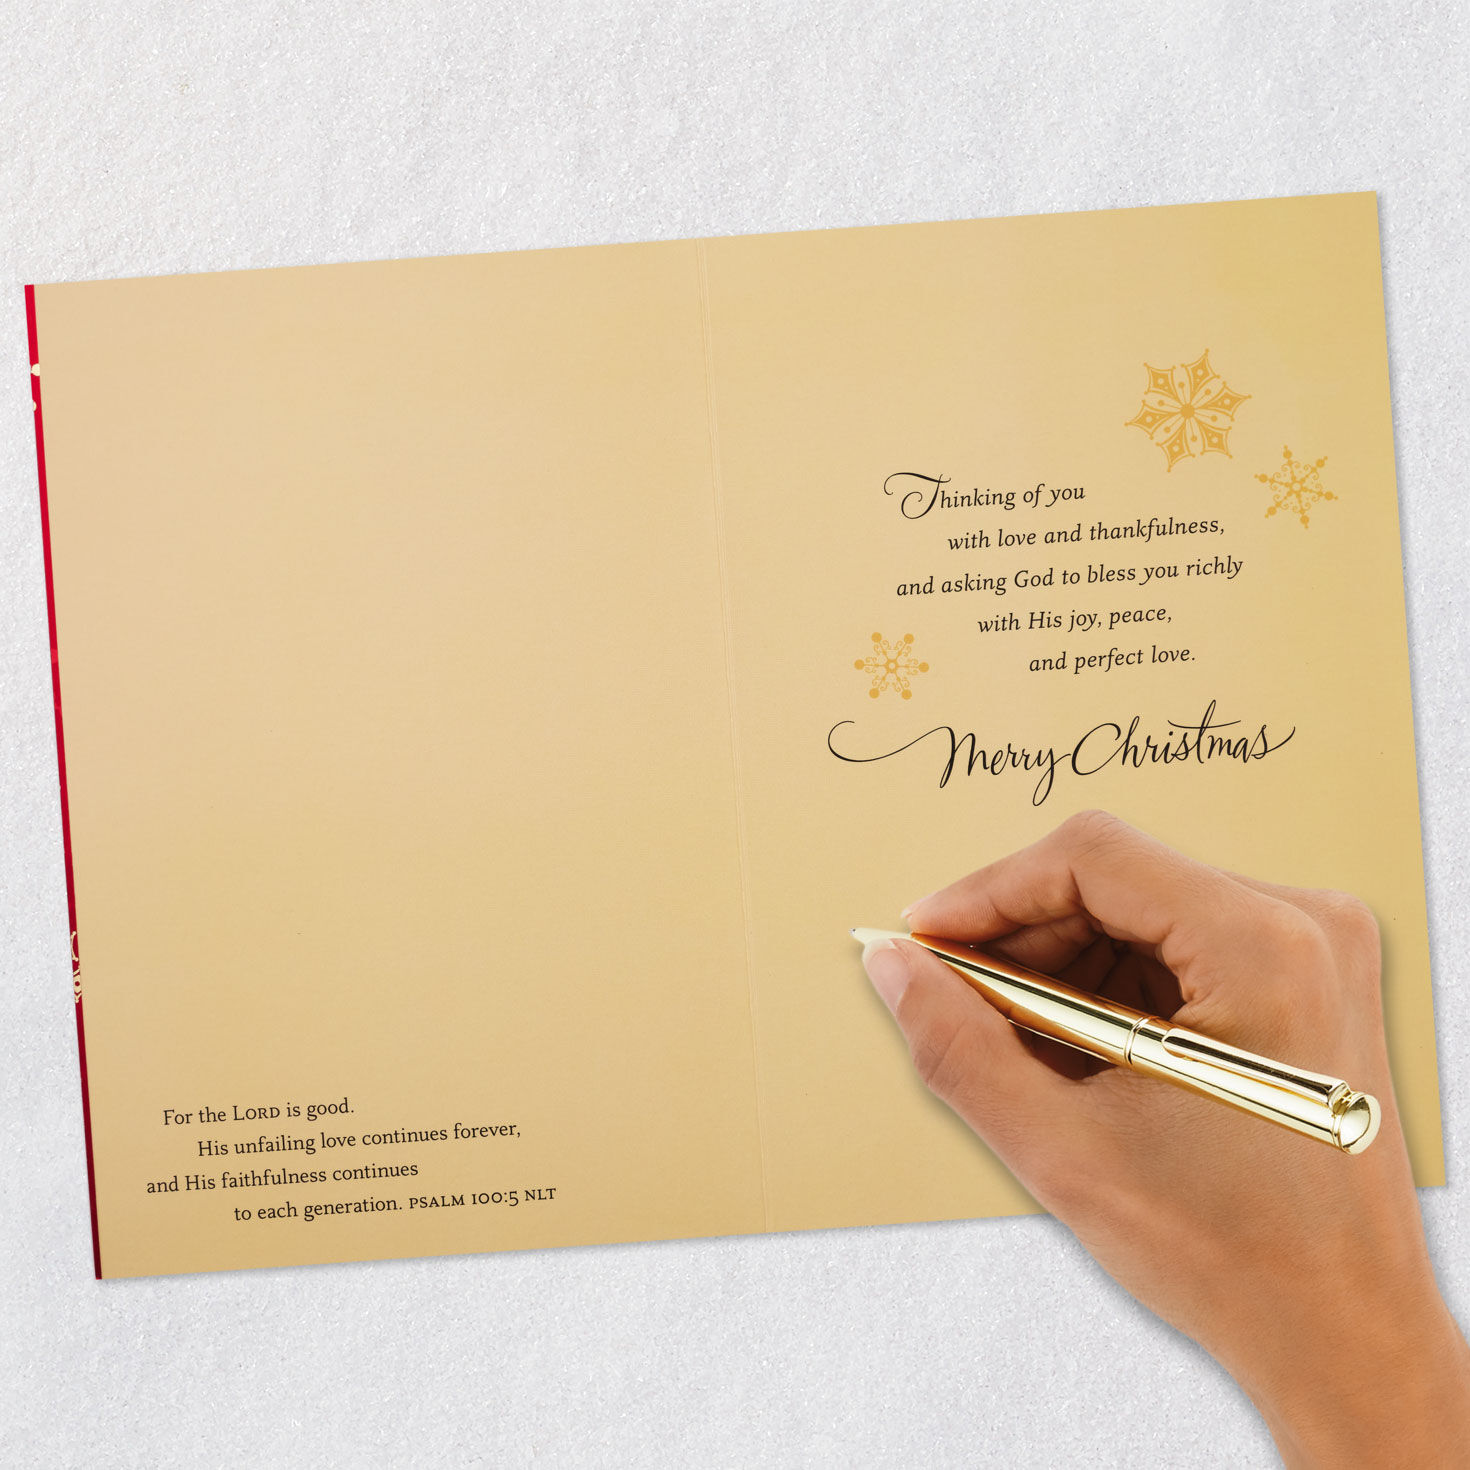 For the LORD is good.
His unfailing love continues forever,
and His faithfulness continues
to each generation. PSALM 100:5 NLT
Thinking of you
with love and thankfulness,
and asking God to bless you richly
with His joy, peace,
and perfect love.
Merry Christmas